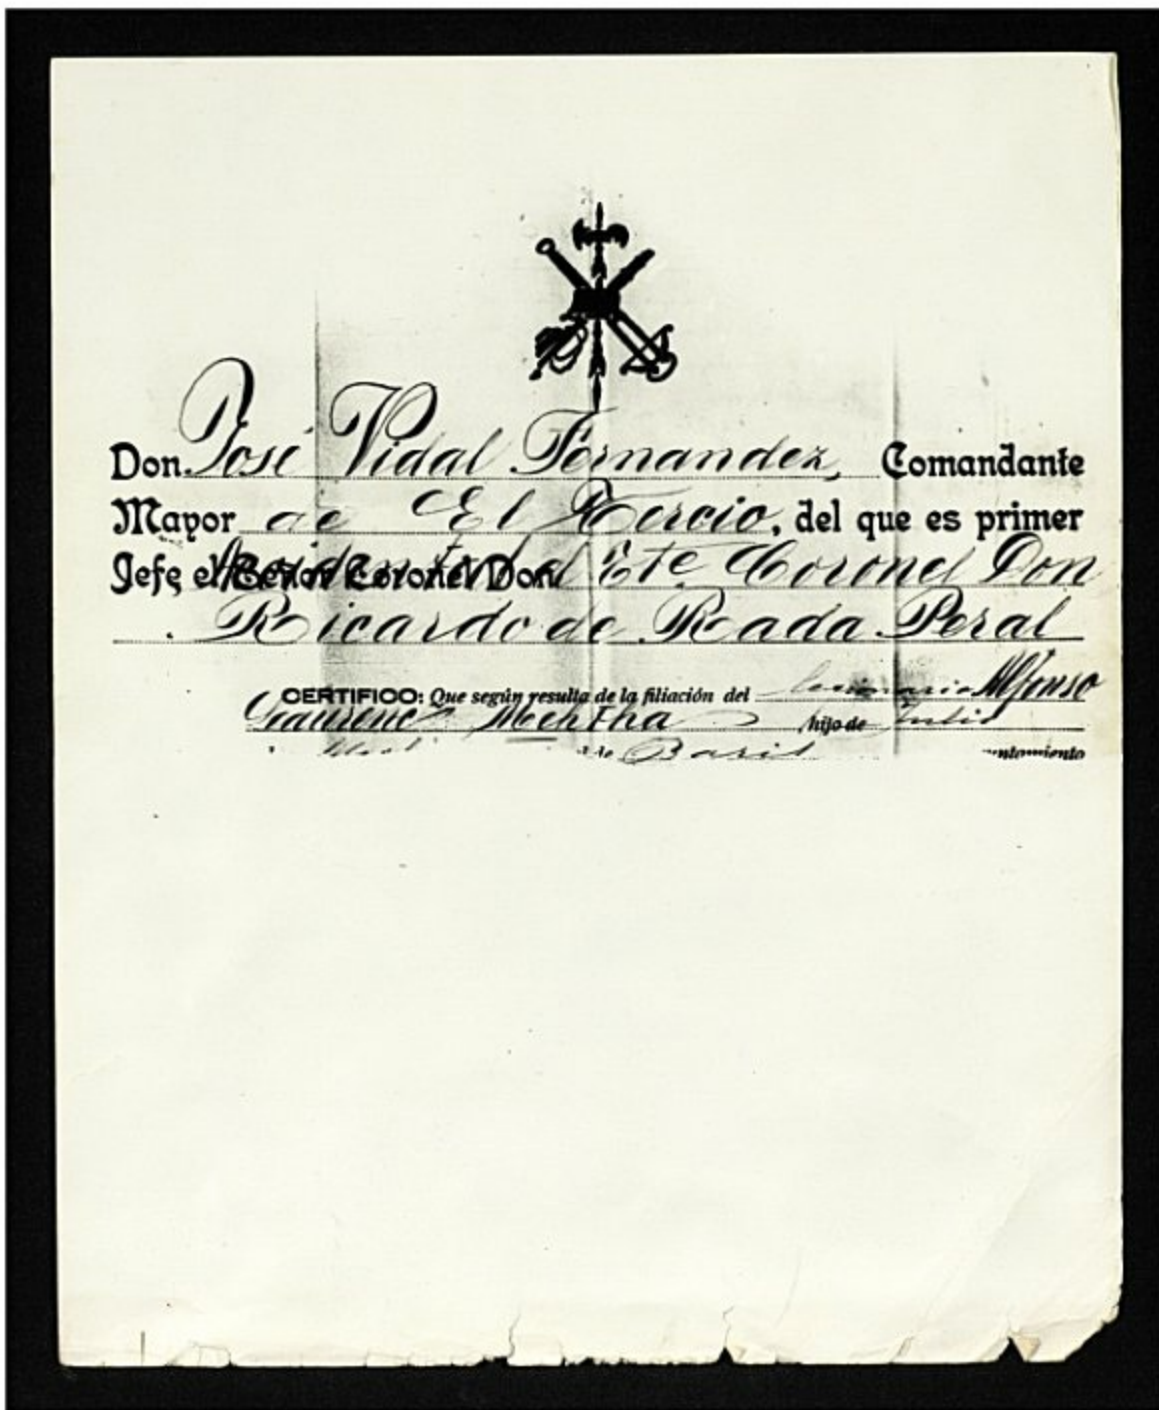 Don José Vidal Fernandez, Comandante
Mayor de El Tercio, del que es primer
Jefe el Señor Coronel Don Accidental el Tte Coronel Don
Ricardo de Rada Peral
CERTIFICO: Que según resulta de la filiación del legionario Alfonso
, hijo de Julio
de Paris